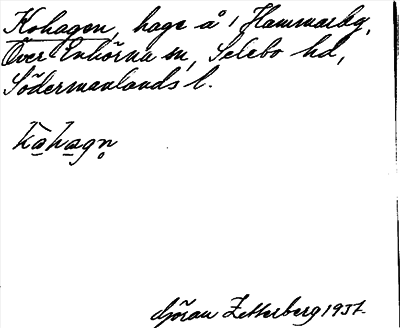 Kohagen, hage å 1 Hammarby,
Över Enhörna sn, Selebo hd,
Södermanlands l.
kåhagn̥
Göran Zetterberg 1937.